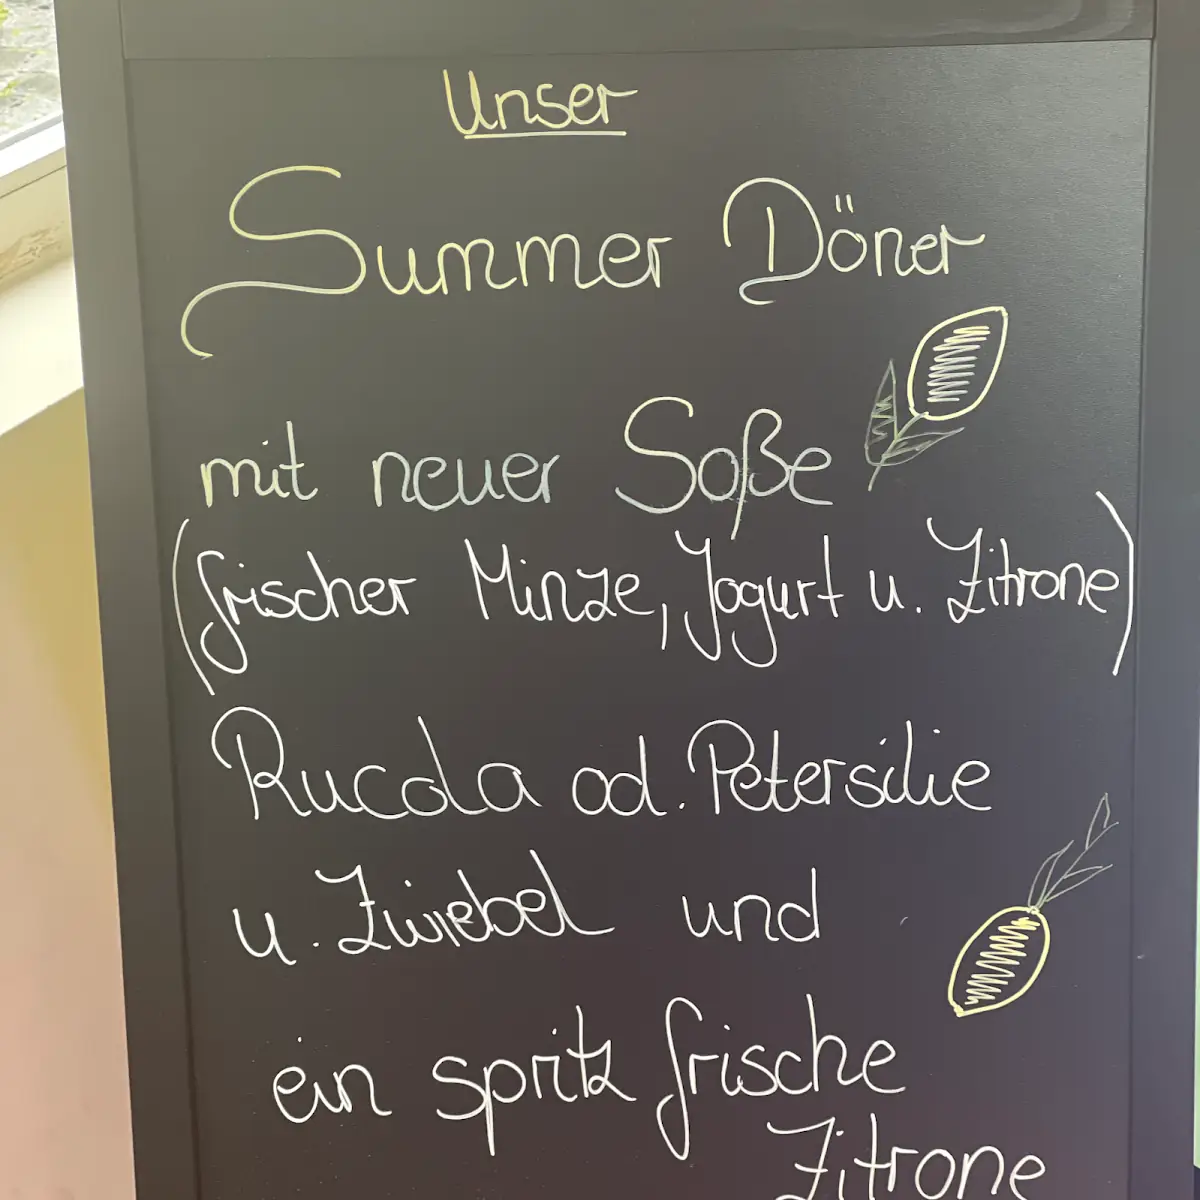 Unser
Summer Döner
mit neuer Soße
(frischer Minze, Jogurt u. Zitrone)
Rucola od. Petersilie
u. Zwiebel und
ein spritz frische
Zitrone